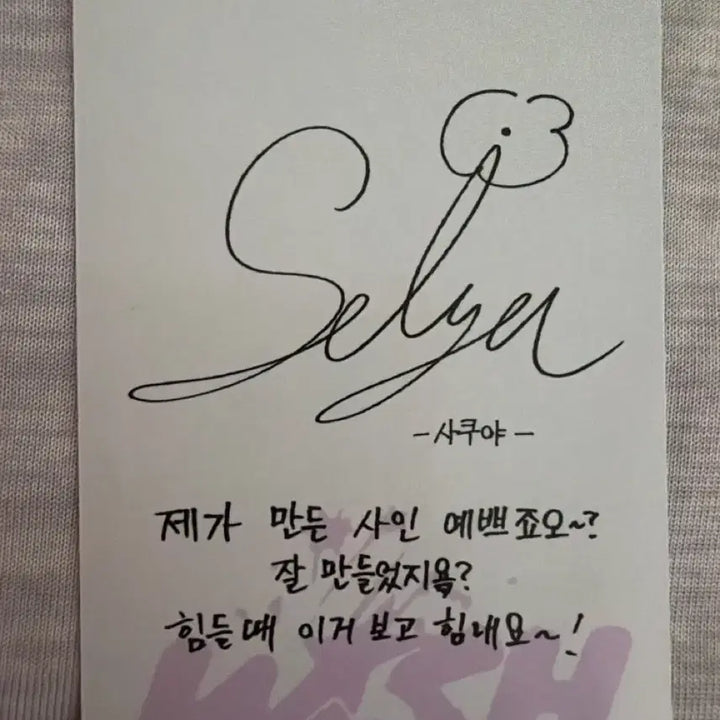 Selya
-사쿠야-
제가 만든 사인 예쁘죠오~?
잘 만들었지욬?
힘들때 이거 보고 힘내요~!
WISH